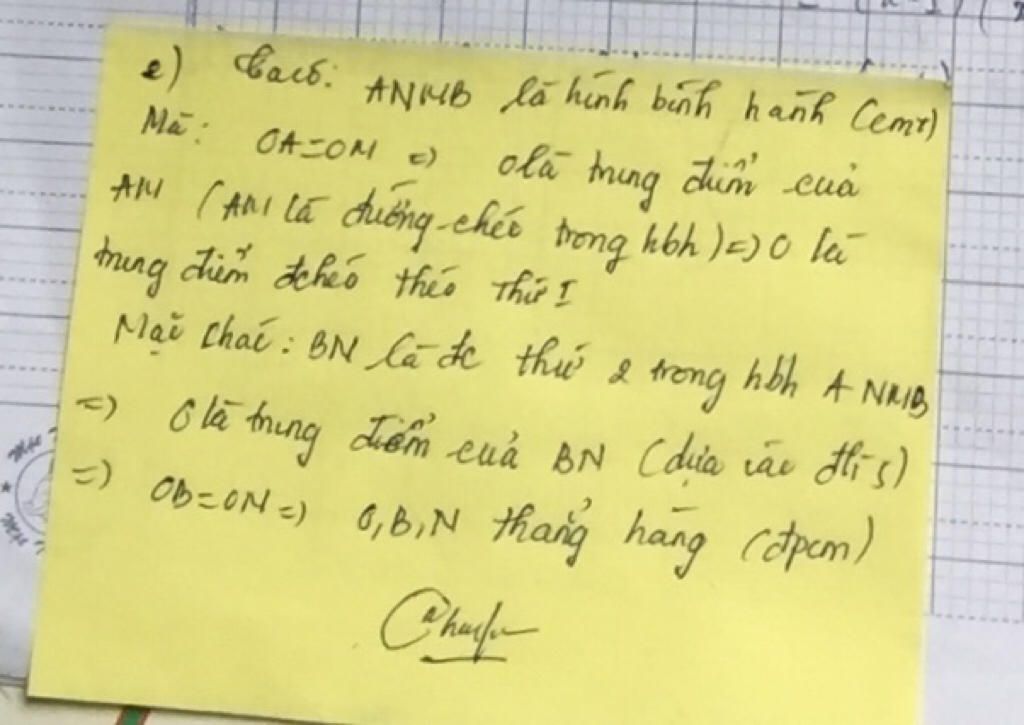 c) Ta có: ANMB là hình bình hành (cmt)
Mà: OA=OM => O là trung điểm của
AM (AM là đường chéo trong hbh) => O là
trung điểm đchéo théo thứ I
Mặc khác: BN là đc thứ 2 trong hbh ANMB
=> O là trung điểm của BN (dựa vào đlí 5)
=> OB=ON => O,B,N thẳng hàng (đpcm)